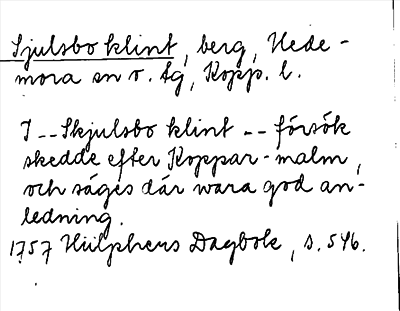 Sjulsbo klint, berg, Hede-
mora sn o. tg, Kopp. l.
I -- Skjulsbo klint -- försök
skedde efter Koppar-malm,
och säges där wara god an-
ledning.
1757 Hülphers Dagbok, s. 546.